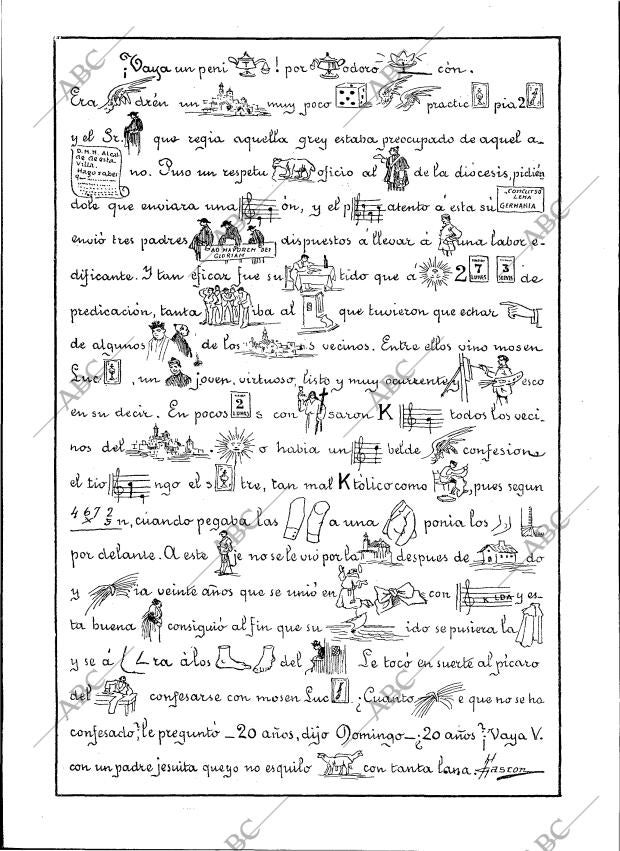 ¡Vaya un peni ! por odoro cón.
Era drén un muy poco practic pia 2
y el Sr. que regia aquella grey estaba preocupado de aquel a-
D.M.N. Alcal
de de esta
Villa.
Hago saber
que
no. Puso un respetu oficio al de la diocesis, pidién
dole que enviara una ón, y el p atento á esta sú
CONCURSO
LENA
GERMANIA
envió tres padres dispuestos á llevar á una labor e-
AD MAJOREM DEI
GLORIAM
dificante. Y tan eficaz fue su tido que á 2 7 LUNES 3 de
predicación, tanta iba al que tuvieron que echar
de algunos de los s vecinos. Entre ellos vino mosen
Luc , un joven, virtuoso, listo y muy ocurrente y esco
en su decir. En pocos 2 LUNES s con saron K todos los veci-
nos del . o habia un belde confesion
el tio ngo el s tre, tan mal K tólico como , pues segun
4 6 7 2 x 5 n, cuando pegaba las a una ponia los
por delante. A este je no se le vio por la despues de do
y ia veinte años que se unió en con K LDA y es-
ta buena consiguió al fin que su ido se pusiera la
y se á ra á los del Le tocó en suerte al pícaro
del confesarse con mosen Luc ¿Cuanto e que no se ha
confesado?, le preguntó _ 20 años, dijo Domingo _ ¿20 años? ¡Vaya V.
con un padre jesuita que yo no esquilo con tanta lana. Gascon
ABC